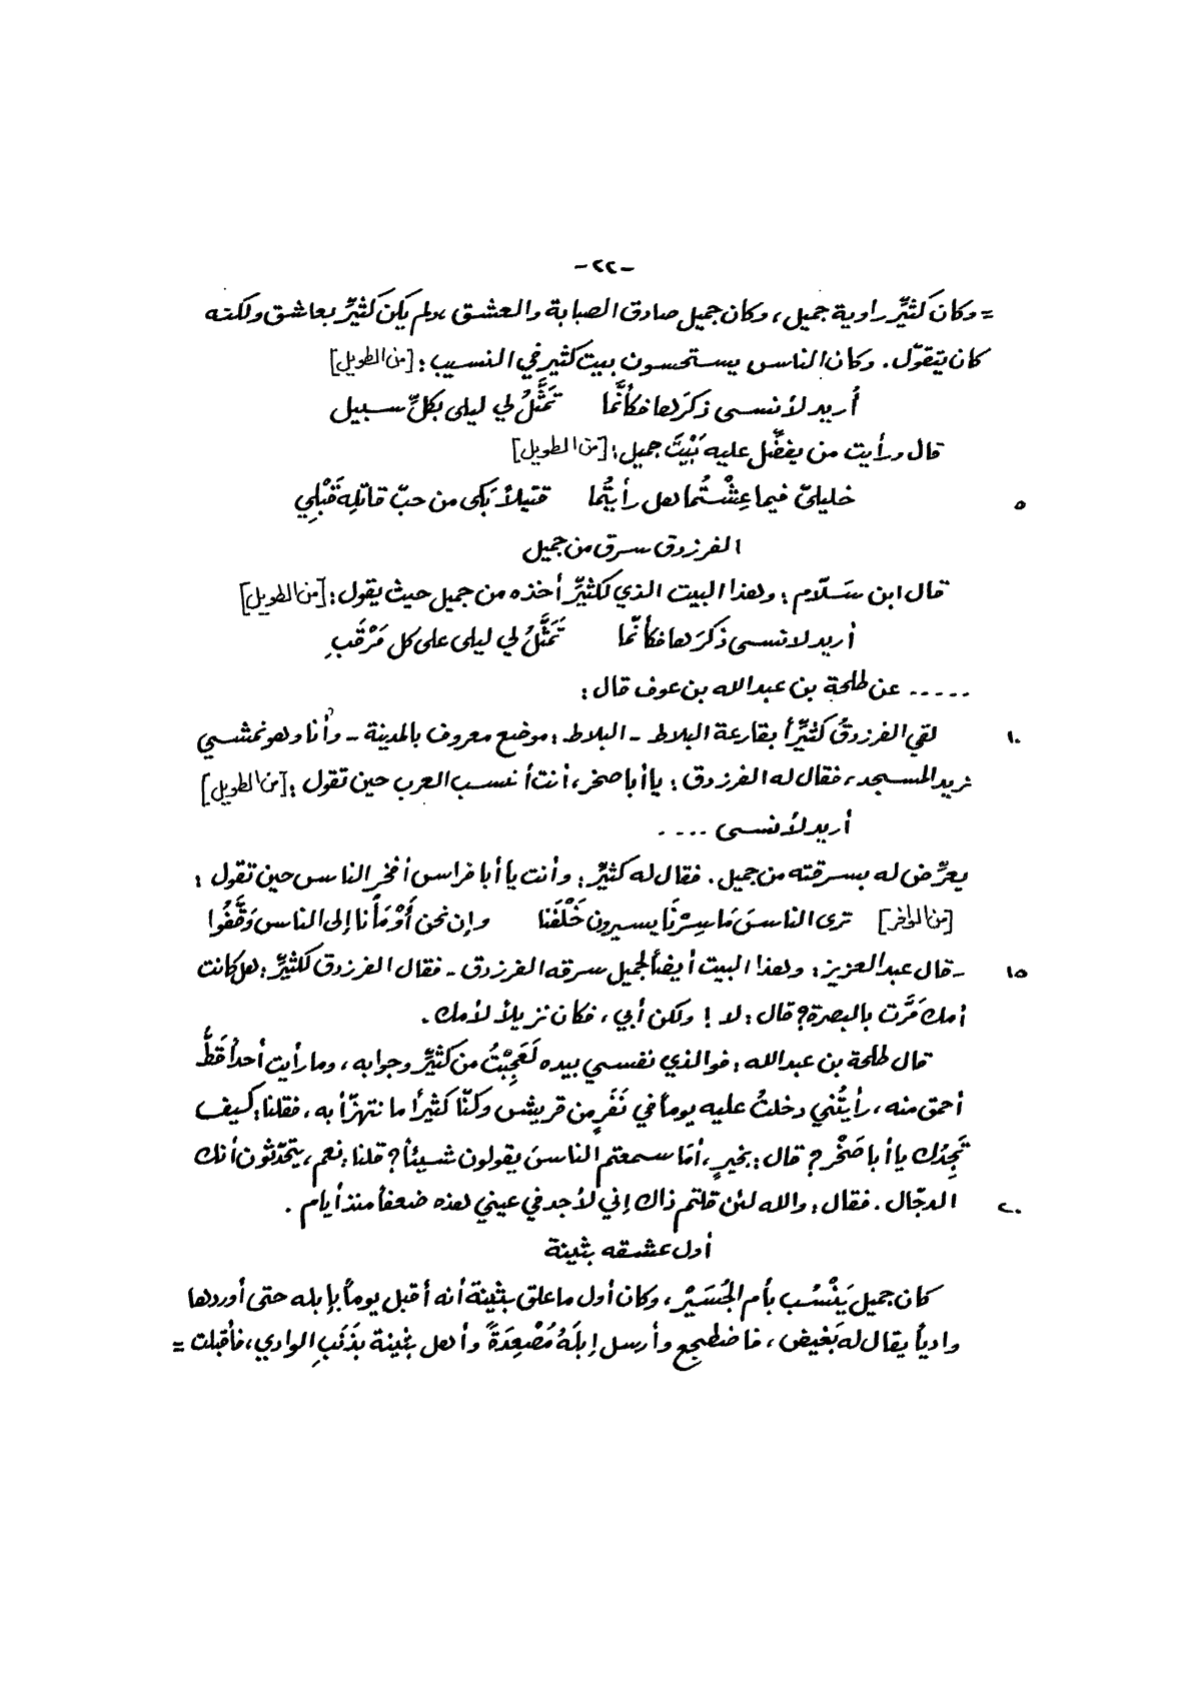 -٢٢-
= وكان كَثيِّر راوية جميل، وكان جميل صادق الصبابة والعشق، ولم يكن كثيِّر بعاشق ولكنه
كان يتقوّل. وكان الناس يستحسنون بيت كثير في النسيب: [من الطويل]
أُريد لأنسى ذكرَها فكأنَّما تَمَثَّلُ لي ليلى بكلِّ سبيل
قال ورأيت من يفضِّل عليه بَيْتَ جميل: [من الطويل]
٥ خليليّ فيما عِشْتُما هل رأيتُما قتيلاً بَكى من حبّ قاتلِه قَبْلِي
الفرزدق سرق من جميل
قال ابن سَلّام: وهذا البيت الذي لكثيِّر أخذه من جميل حيث يقول: [من الطويل]
أريد لانسى ذكرَها فكأنّما تَمَثَّلُ لي ليلى على كل مَرْقَبِ
..... عن طلحة بن عبدالله بن عوف قال:
١٠ لقي الفرزدقُ كثيِّراً بقارعة البلاط - البلاط: موضع معروف بالمدينة - وأنا وهو نمشي
نريد المسجد، فقال له الفرزدق: يا أبا صخر، أنت أنسب العرب حين تقول: [من الطويل]
أريد لأنسى ....
يعرِّض له بسرقته من جميل. فقال له كثيِّر: وأنت يا أبا فراس أفخر الناس حين تقول:
[من الوافر] ترى الناسَ مَا سِرْنَا يسيرون خَلْفَنا وإن نحن أَوْمَأْنا إلى الناس وَقَّفُوا
١٥ - قال عبد العزيز: وهذا البيت أيضاً لجميل سرقه الفرزدق - فقال الفرزدق لكثيِّر: هل كانت
أمك مَرَّت بالبصرة؟ قال: لا! ولكن أبي، فكان نزيلاً لأمك.
قال طلحة بن عبدالله: فوالذي نفسي بيده لَعَجِبْتُ من كثيِّر وجوابه، وما رأيت أحداً قَطُّ
أحمق منه، رأيتُني دخلتُ عليه يوماً في نَفَرٍ من قريش وكنّا كثيراً ما نتهزّأ به، فقلنا: كيف
تَجِدُك يا أبا صَخْر؟ قال: بخيرٍ، أمَا سمعتم الناسَ يقولون شيئاً؟ قلنا: نعم، يتحدّثون أنك
٢٠ الدجّال. فقال: والله لئن قلتم ذاك إني لأجد في عيني هذه ضعفاً منذ أيام.
أول عشقه بثينة
كان جميل يَنْسُب بأم الجُسَيْر، وكان أول ما علق بثينة أنه أقبل يوماً بإبله حتى أوردها
وادياً يقال له بَغيض، فاضطجع وأرسل إبلَهُ مُصْعِدَةً وأهل بثينة بذَنَبِ الوادي، فأقبلت =